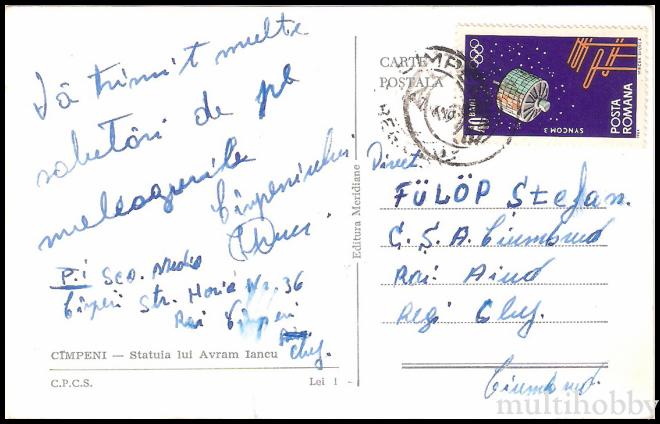 Vă trimit multe
salutări de pe
meleagurile
Cîmpeniului
P.i Sco. Medie
Cîmpeni Str. Horia Nr. 36
Rai Cîmpeni
Cluj.
CÎMPENI — Statuia lui Avram Iancu
C.P.C.S. Lei 1
Editura Meridiane
CARTE
POȘTALĂ
40 BANI
SYNCOM 3
POSTA
ROMANA
Direct.
FÜLÖP Stefan.
C.S.A. Ciumbrud
Rai Aiud
Regi Cluj.
Ciumbrud.
multihobby